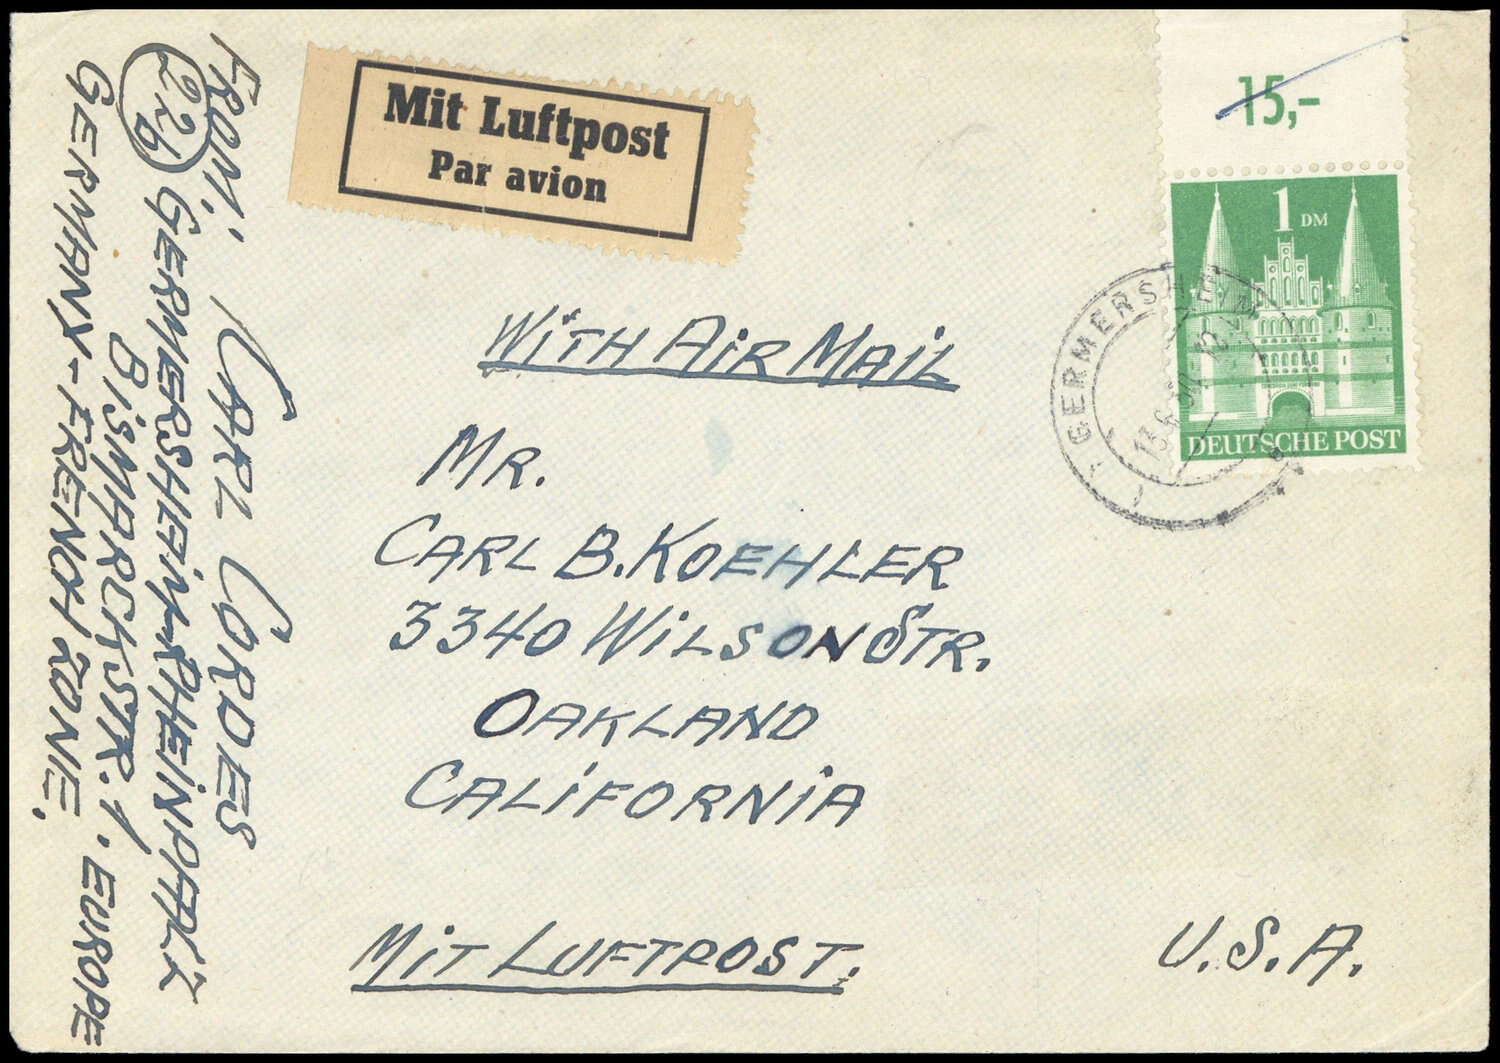 FROM: KARL CORDES
(22b) GERMERSHEIM-RHEINPFALZ
BISMARCKSTR. 1. EUROPE
GERMANY-FRENCH ZONE.
Mit Luftpost
Par avion
15,-
1 DM
DEUTSCHE POST
GERMERSHEIM
WITH AIR MAIL
MR.
CARL B. KOEHLER
3340 WILSON STR.
OAKLAND
CALIFORNIA
MIT LUFTPOST.
U.S.A.